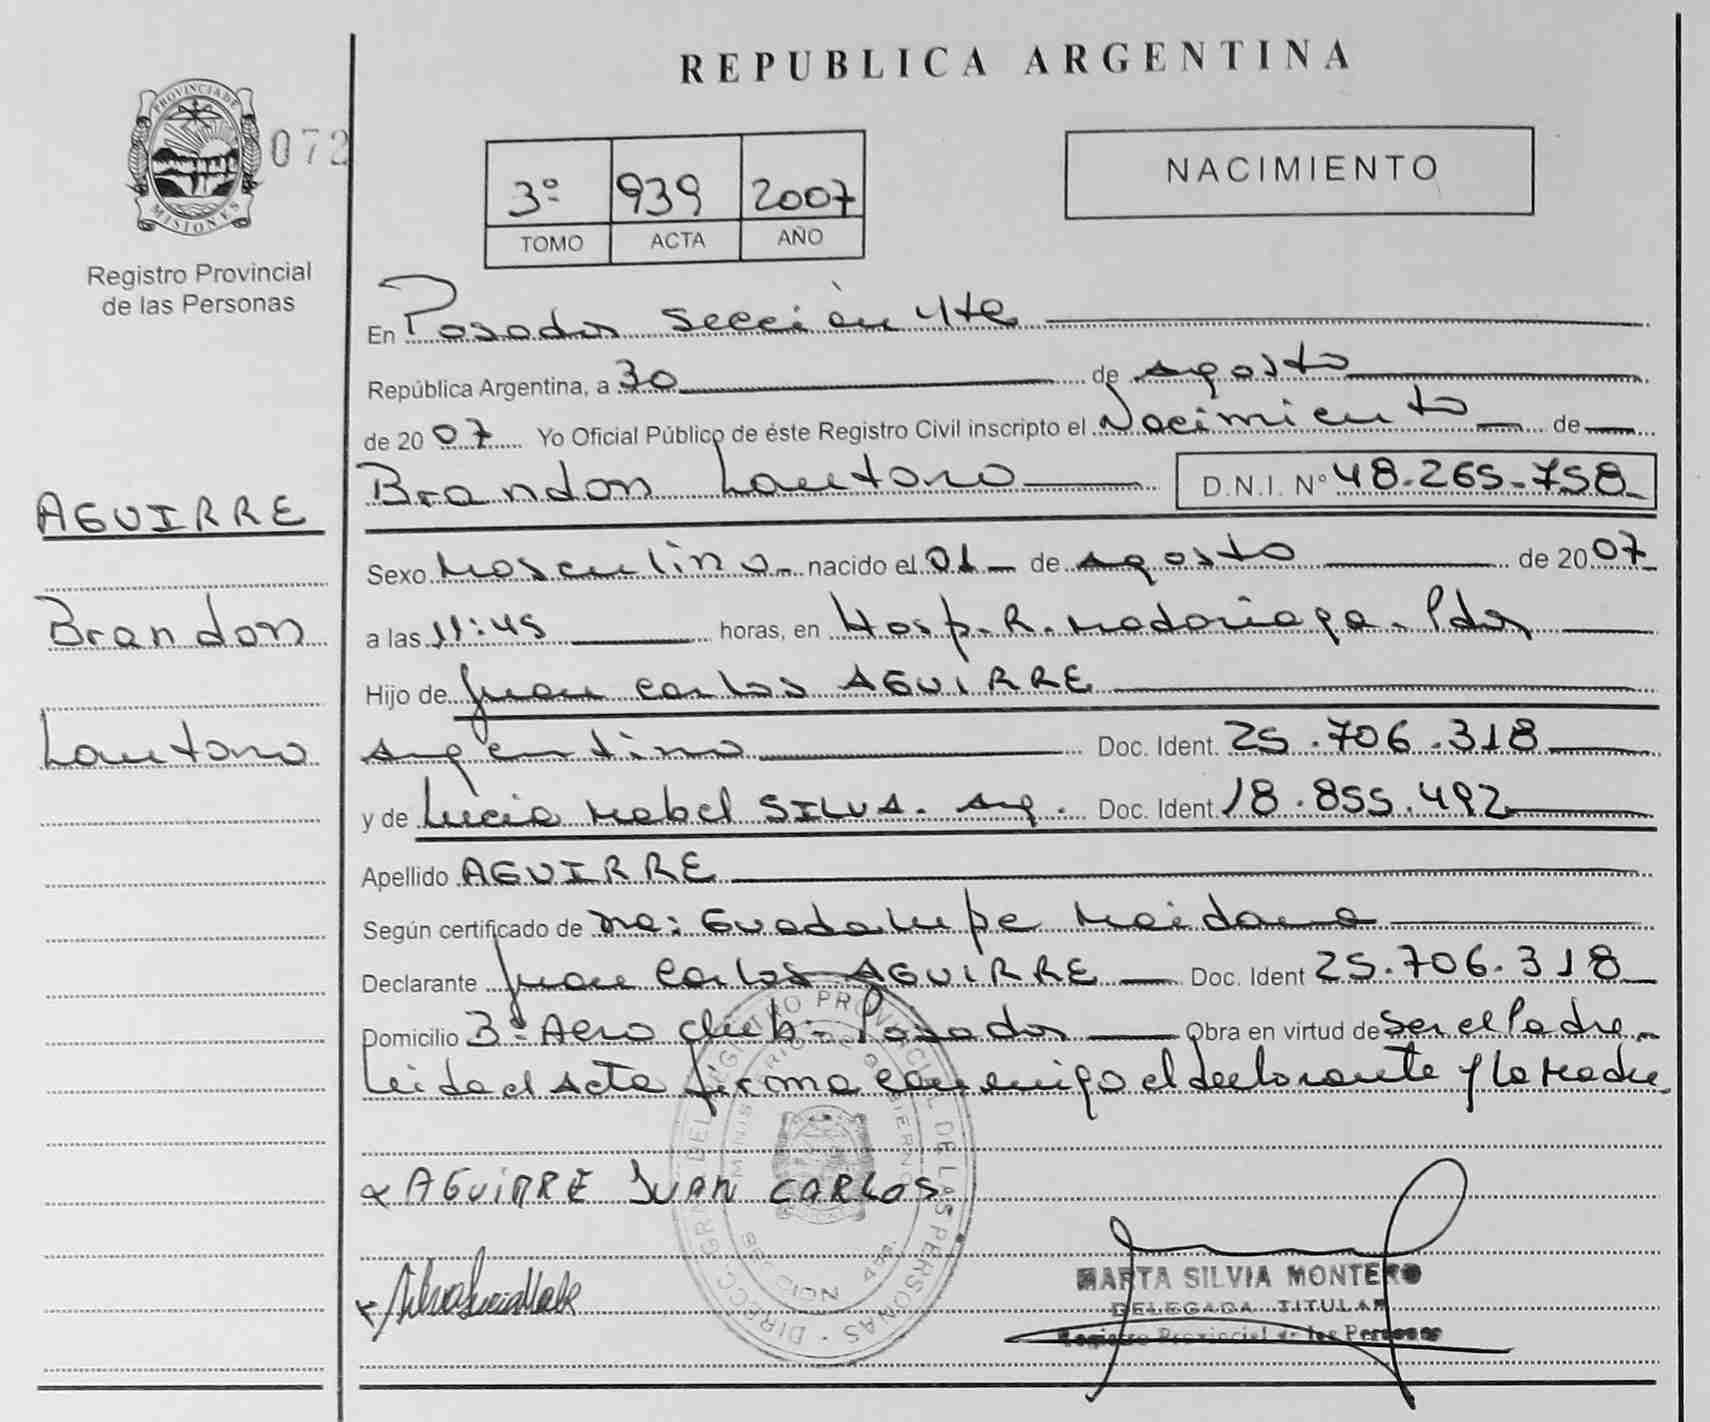 REPUBLICA ARGENTINA
PROVINCIA DE
MISIONES
072
Registro Provincial
de las Personas
3º 939 2007
TOMO ACTA AÑO
NACIMIENTO
En Posadas Sección 4ta
República Argentina, a 30 de Agosto
de 2007 Yo Oficial Público de éste Registro Civil inscripto el Nacimiento de
Brandon Lautaro D.N.I. Nº 48.265.758
AGUIRRE
Brandon
Lautaro
Sexo Masculino nacido el 01 de Agosto de 2007
a las 11:45 horas, en Hosp. R. Madariaga. Pdas
Hijo de Juan Carlos AGUIRRE
Argentino Doc. Ident. 25.706.318
y de Lucia Mabel SILVA. Arg. Doc. Ident. 18.855.492
Apellido AGUIRRE
Según certificado de Guadalupe Maidana
Declarante Juan Carlos AGUIRRE Doc. Ident 25.706.318
Domicilio Aero Club - Posadas Obra en virtud de Ser el Padre
Leida el Acta firma conmigo el declarante y la Madre
AGUIRRE JUAN CARLOS
Silva Lucia Mabe
DIRECC. GRAL. DEL REGISTRO PROVINCIAL DE LAS PERSONAS
MINISTERIO DE GOBIERNO
MARTA SILVIA MONTERO
DELEGADA TITULAR
Registro Provincial de las Personas